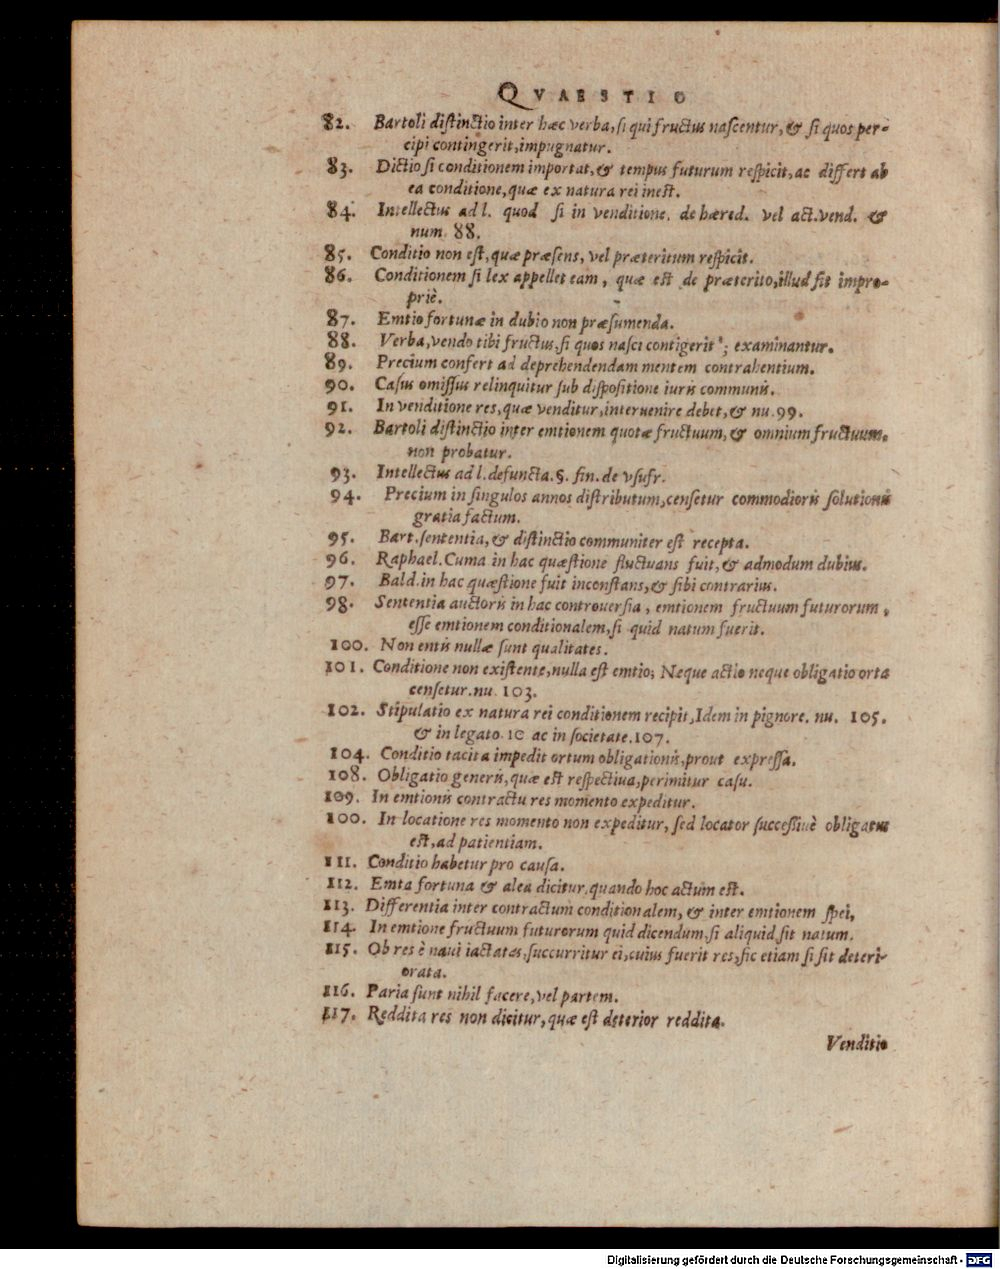 QVAESTIO
82. Bartoli distinctio inter hæc verba, si qui fructus nascentur, & si quos per-
cipi contingerit, impugnatur.
83. Dictio si conditionem importat, & tempus futurum respicit, ac differt ab
ea conditione, quæ ex natura rei inest.
84. Intellectus ad l. quod si in venditione. de hæred. vel act. vend. &
num. 88.
85. Conditio non est, quæ præsens, vel præteritum respicit.
86. Conditionem si lex appellet eam, quæ est de præterito, illud fit impro-
priè.
87. Emtio fortunæ in dubio non præsumenda.
88. Verba, vendo tibi fructus, si quos nasci contigerit; examinantur.
89. Precium confert ad deprehendendam mentem contrahentium.
90. Casus omissus relinquitur sub dispositione iuris communis.
91. In venditione res, quæ venditur, interuenire debet, & nu. 99.
92. Bartoli distinctio inter emtionem quotæ fructuum, & omnium fructuum.
non probatur.
93. Intellectus ad l. defuncta. §. fin. de vsufr.
94. Precium in singulos annos distributum, censetur commodioris solutionis
gratia factum.
95. Bart. sententia, & distinctio communiter est recepta.
96. Raphael. Cuma in hac quæstione fluctuans fuit, & admodum dubius.
97. Bald. in hac quæstione fuit inconstans, & sibi contrarius.
98. Sententia auctoris in hac controuersia, emtionem fructuum futurorum,
esse emtionem conditionalem, si quid natum fuerit.
100. Non entis nullæ sunt qualitates.
101. Conditione non existente, nulla est emtio; Neque actio neque obligatio orta
censetur. nu. 103.
102. Stipulatio ex natura rei conditionem recipit, Idem in pignore. nu. 105.
& in legato. 10 ac in societate. 107.
104. Conditio tacita impedit ortum obligationis, prout expressa.
108. Obligatio generis, quæ est respectiua, perimitur casu.
109. In emtionis contractu res momento expeditur.
100. In locatione res momento non expeditur, sed locator successiuè obligatus
est, ad patientiam.
111. Conditio habetur pro causa.
112. Emta fortuna & alea dicitur, quando hoc actum est.
113. Differentia inter contractum conditionalem, & inter emtionem spei,
114. In emtione fructuum futurorum quid dicendum, si aliquid sit natum.
115. Ob res è naui iactatas, succurritur ei, cuius fuerit res, sic etiam si sit deteri-
orata.
116. Paria sunt nihil facere, vel partem.
117. Reddita res non dicitur, quæ est deterior reddita.
Venditio
Digitalisierung gefördert durch die Deutsche Forschungsgemeinschaft - DFG